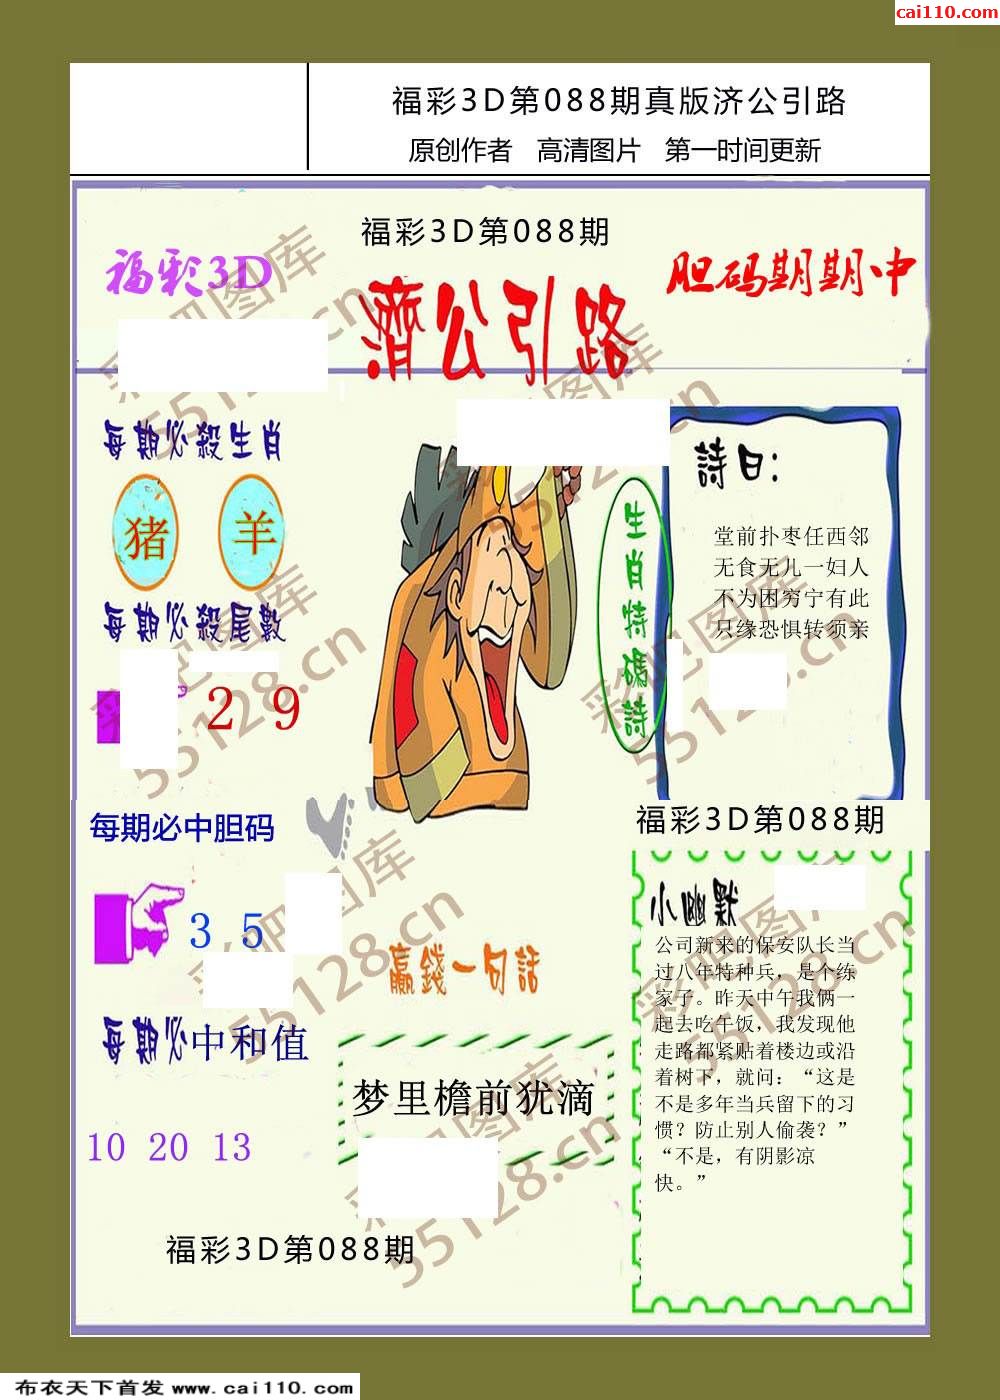 cai110.com
福彩3D第088期真版济公引路
原创作者 高清图片 第一时间更新
福彩3D第088期
福彩3D
胆码期期中
濟公引路
每期必殺生肖
猪 羊
每期必殺尾數
2 9
生肖特碼詩
詩曰：
堂前扑枣任西邻
无食无儿一妇人
不为困穷宁有此
只缘恐惧转须亲
每期必中胆码
3 5
福彩3D第088期
小幽默
公司新来的保安队长当
过八年特种兵，是个练
家子。昨天中午我俩一
起去吃午饭，我发现他
走路都紧贴着楼边或沿
着树下，就问：“这是
不是多年当兵留下的习
惯？防止别人偷袭？”
“不是，有阴影凉
快。”
赢錢一句話
梦里檐前犹滴
每期必中和值
10 20 13
福彩3D第088期
彩吧图库
55128.cn
彩吧图库
55128.cn
彩吧图库
55128.cn
彩吧图库
55128.cn
彩吧图库
55128.cn
彩吧图库
55128.cn
彩吧图库
55128.cn
布衣天下首发 www.cai110.com